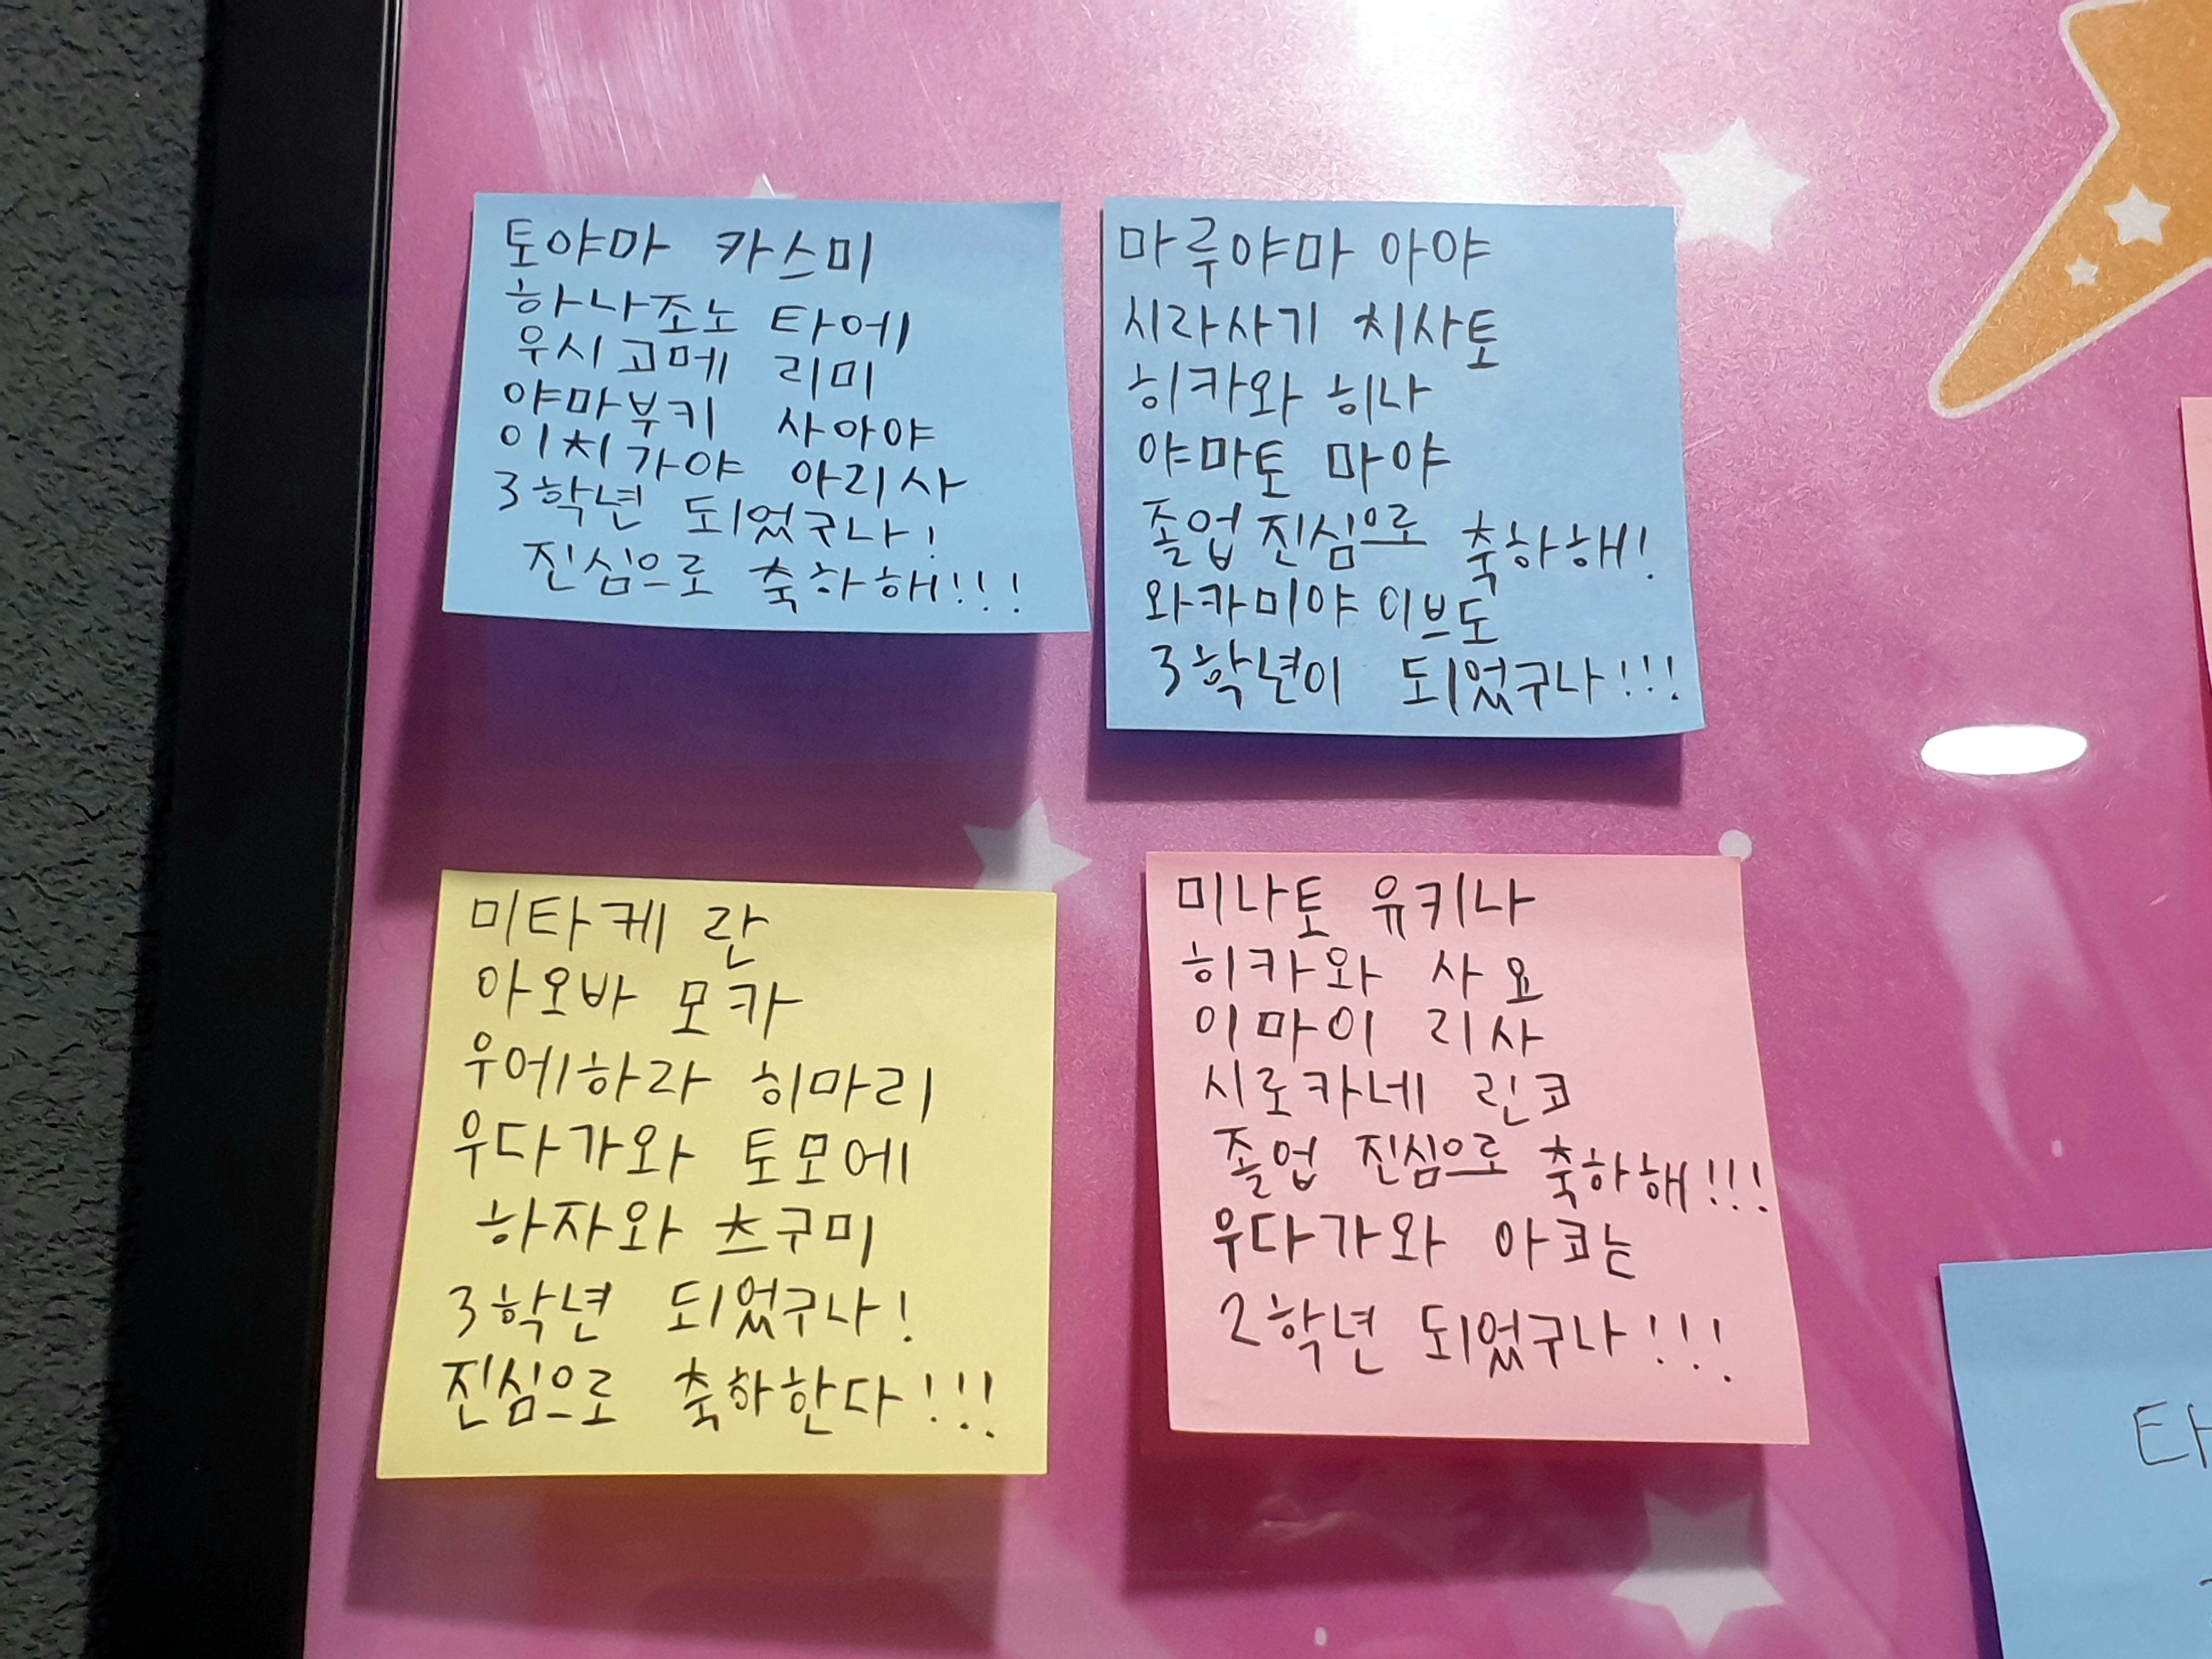 토야마 카스미
하나조노 타에
우시고메 리미
야마부키 사아야
이치가야 아리사
3학년 되었구나!
진심으로 축하해!!!
마루야마 아야
시라사기 치사토
히카와 히나
야마토 마야
졸업 진심으로 축하해!
와카미야 이브도
3학년이 되었구나!!!
미타케 란
아오바 모카
우에하라 히마리
우다가와 토모에
하자와 츠구미
3학년 되었구나!
진심으로 축하한다!!!
미나토 유키나
히카와 사요
이마이 리사
시로카네 린코
졸업 진심으로 축하해!!!
우다가와 아코는
2학년 되었구나!!!